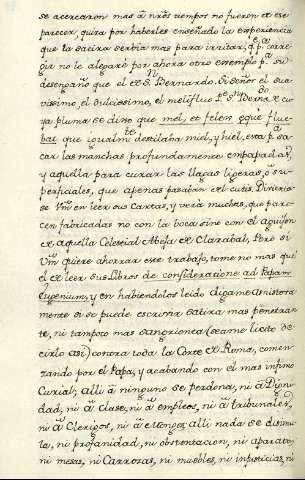 se acercaron mas a nrõs tiempos no fueron de ese
parecer, quiza por haberles enseñado la experiencia
que la satira serbia mas para irritar, q.e p.a corre-
gir no le alegaré por ahora otro exemplo p.a su
desengaño que el de S.n Bernardo. Si señor el sua-
vissimo, el dulcissimo, el melifluo P.e S.n Bern.do de cu-
ya pluma se dixo que mel, et felem eque flue-
bat que igualm.te destilaba miel, y hiel, esta p.a sa-
car las manchas profundamente empapadas,
y aquella para curar las llagas ligeras, o su-
perficiales, que apenas pasaban del cutis. Divierta-
se Vm en leer sus Cartas, y verá muchas, que pare-
cen fabricadas no con la boca sino con el aguijon
de aquella Celestial Abeja de Claraval. Pero si
Vm quiere ahorrar ese trabajo, tome no mas que
el de leer sus Libros de consideratione ad Papam
Eugenium, y en habiendolos leido digame amistosa
mente si se puede escribir satira mas penetran-
te, ni tampoco mas sangrienta (seame licito de-
cirlo asi) contra toda la Corte de Roma, comen-
zando por el Papa, y acabando con el mas infimo
Curial; alli a ninguno se perdona, ni a Digni-
dad, ni a clase, ni a empleos, ni a tribunales,
ni a Clerigos, ni a Monges, alli nada se disimu-
la, ni profanidad, ni obstentacion, ni aparato,
ni mesas, ni Carrozas, ni muebles, ni injusticias, ni